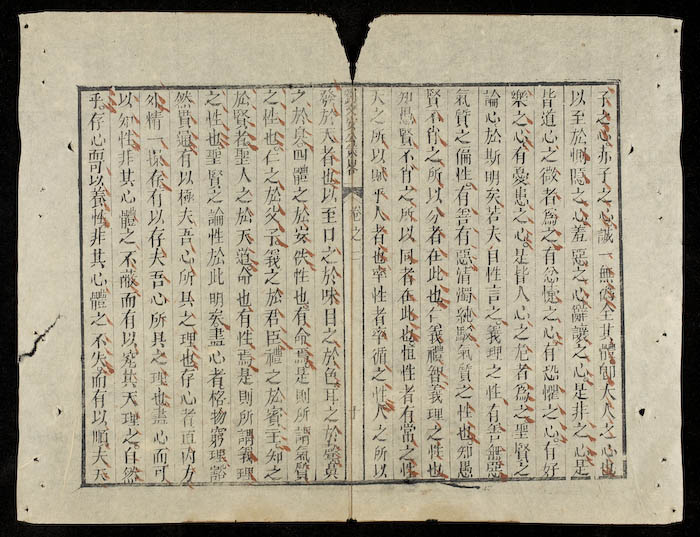 子之心赤子之心誠一無偽全其體即大人之心也
以至於惻隱之心羞惡之心辭讓之心是非之心是
皆道心之微者為之有忿懥之心有恐懼之心有好
樂之心有憂患之心是皆人心之危者為之聖賢之
論心於斯明矣若夫自性言之義理之性有善無惡
氣質之偏性有善有惡清濁純駁氣質之性也知愚
賢不肖之所以分者在此也仁義禮智義理之性也
知愚賢不肖之所以同者在此也恒性者有常之性
天之所以賦乎人者也率性者率循之性人之所以
卷之一
發於天者也以至口之於味目之於色耳之於聲鼻
之於臭四體之於安佚性也有命焉是則所謂氣質
之性也仁之於父子義之於君臣禮之於賓主知之
於賢者聖人之於天道命也有性焉是則所謂義理
之性也聖賢之論性於此明矣盡心者格物窮理豁
然貫通有以極夫吾心所具之理也存心者直內方
外情一慎存有以存夫吾心所具之理也盡心而可
以知性非其心體之不蔽而有以窮其天理之自然
乎存心而可以養性非其心體之不失而有以順夫天